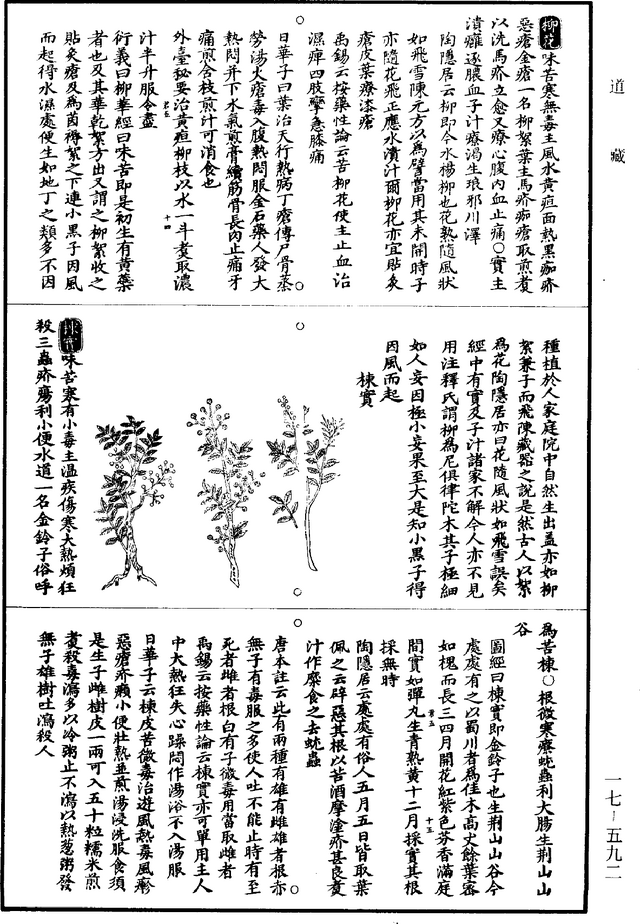 道藏
柳花味苦寒無毒主風水黃疸面熱黑痂疥
惡瘡金瘡一名柳絮葉主馬疥痂瘡取煎煑
以洗馬疥立愈又療心腹內血止痛○實主
潰癰逐膿血子汁療渴生琅邪川澤
陶隱居云柳即今水楊柳也花熟隨風狀
如飛雪陳元方以爲譬當用其未開時子
亦隨花飛正應水漬汁爾柳花亦宜貼灸
瘡皮葉療漆瘡
禹錫云按藥性論云苦柳花使主止血治
濕痺四肢攣急膝痛
日華子曰葉治天行熱病丁瘡傳尸骨蒸
勞湯火瘡毒入腹熱悶服金石藥人發大
熱悶并下水氣煎膏續筋骨長肉止痛牙
痛煎含枝煎汁可消食也
外臺秘要治黃疸柳枝以水一斗煑取濃
汁半升服令盡
衍義曰柳華經曰味苦即是初生有黃蘂
者也及其華乾絮方出又謂之柳絮收之
貼灸瘡及爲茵褥絮之下連小黑子因風
而起得水濕處便生如地丁之類多不因
種植於人家庭院中自然生出蓋亦如柳
絮兼子而飛陳藏器之說是然古人以絮
爲花陶隱居亦曰花隨風狀如飛雪誤矣
經中有實及子汁諸家不解今人亦不見
用注釋氏謂柳爲尼俱律陀木其子極細
如人妄因極小妄果至大是知小黑子得
因風而起
楝實
楝實味苦寒有小毒主溫疾傷寒大熱煩狂
殺三蟲疥瘍利小便水道一名金鈴子俗呼
爲苦楝○根微寒療蚘蟲利大腸生荊山山
谷
圖經曰楝實即金鈴子也生荊山山谷今
處處有之以蜀川者爲佳木高丈餘葉密
如槐而長三四月開花紅紫色芬香滿庭
間實如彈丸生青熟黃十二月採實其根
採無時
陶隱居云處處有俗人五月五日皆取葉
佩之云辟惡其根以苦酒摩塗疥甚良煑
汁作糜食之去蚘蟲
唐本註云此有兩種有雄有雌雄者根赤
無子有毒服之多使人吐不能止時有至
死者雌者根白有子微毒用當取雌者
禹錫云按藥性論云楝實亦可單用主人
中大熱狂失心躁悶作湯浴不入湯服
日華子云楝皮苦微毒治遊風熱毒風疹
惡瘡疥癩小便壯熱並煎湯浸洗服食須
是生子雌樹皮一兩可入五十粒糯米煎
煑殺毒瀉多以冷粥止不瀉以熱葱粥發
無子雄樹吐瀉殺人
一七-五九二